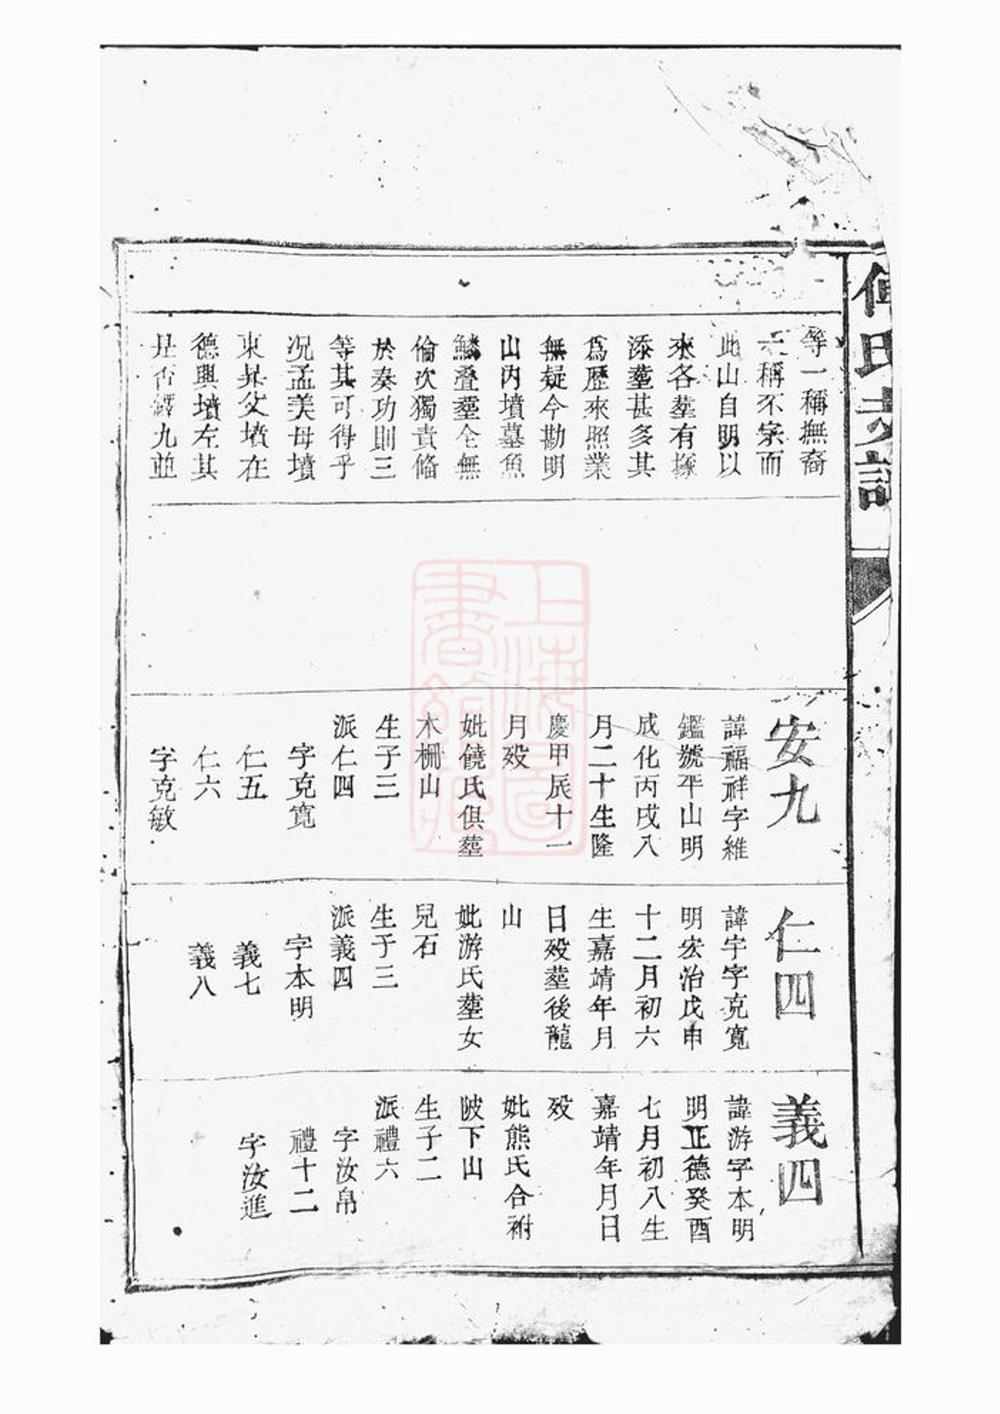 氏支譜
等一稱撫裔
一稱不宗而
此山自明以
來各塟有據
添塟甚多其
爲歷來照業
無疑今勘明
山內墳墓魚
鱗叠塟全無
倫次獨責脩
於奏功則三
等其可得乎
况孟美母墳
東昇父墳在
德興墳左其
是否鐸九並
安九
諱福祥字維
鑑號平山明
成化丙戌八
月二十生隆
慶甲辰十一
月殁
妣饒氏俱塟
木栅山
生子三
派仁四
字克寬
仁五
仁六
字克敏
仁四
諱宇字克寬
明宏治戊申
十二月初六
生嘉靖年月
日殁塟後龍
山
妣游氏塟女
兒石
生子三
派義四
字本明
義七
義八
義四
諱游字本明
明正德癸酉
七月初八生
嘉靖年月日
殁
妣熊氏合祔
陂下山
生子二
派禮六
字汝帛
禮十二
字汝進
上海圖書館藏